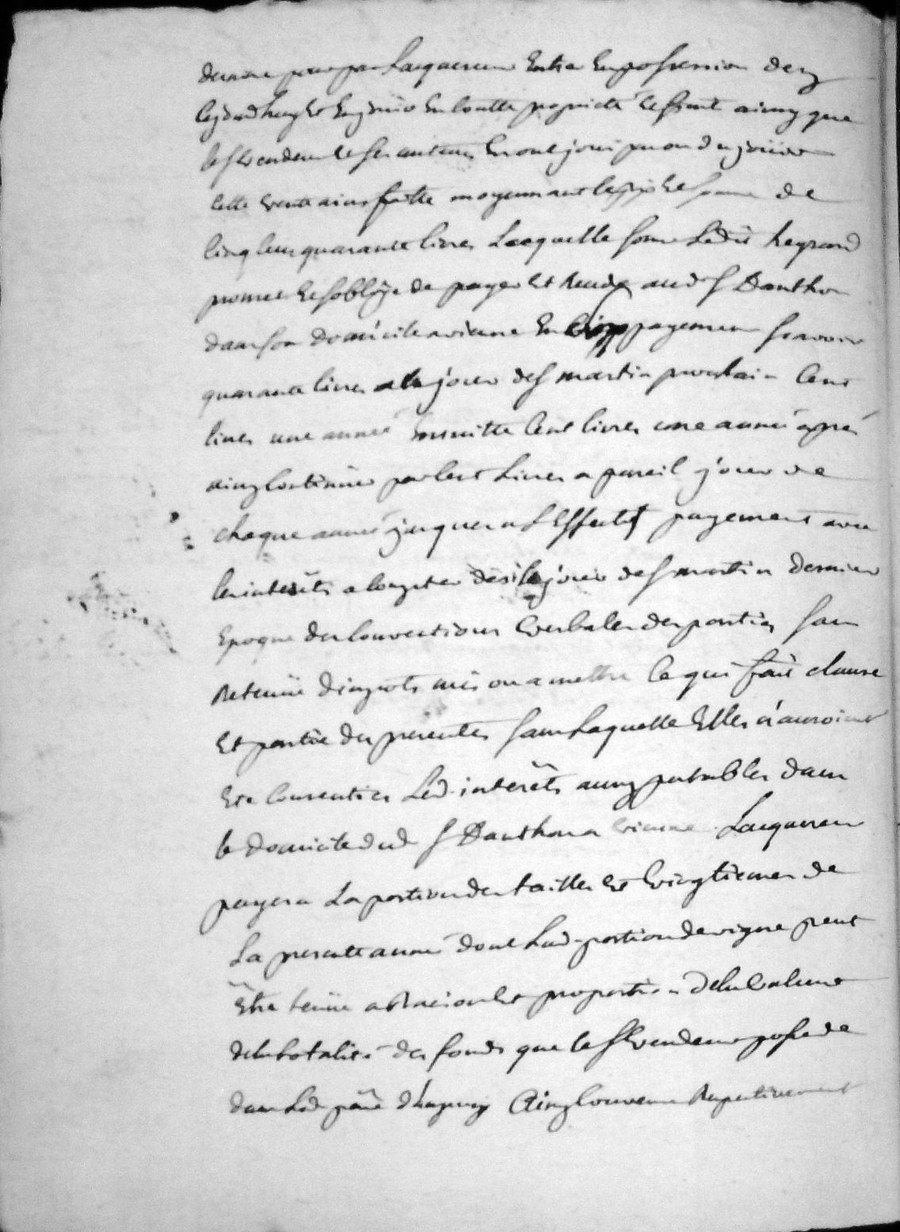 pour par Lacquereur Entrer En possession dez
lejourdhuy Et En jouir En toutte propriete Et fruit ainsy que
le Sr vendeur Et ses auteurs En ont joui pu ou du joüir
cette vente ainsy faitte moyennant le prix Et somme de
cinq cent quarante livres Laquelle somme Ledit heyraud
promet Et soblige de payer Et rendre audt Sr Danthon
dans son domicile a vienne En payement scavoir
quarante livres a la jour de St martin prochain Cent
livres une année Ensuitte Cent livres une année après
ainsy Continüer par Cent Livres a pareil jour de
chaque année jusques a L'Effectif payement avec
les interêts a compter dès le jour de St martin dernier
Epoque des Conventions verbales des parties sans
Retenüe d'impots mis ou a mettre Ce qui fait clause
Et partie des presentes sans Laquelle Elles n'auroient
Eté Consenties Led. interêts aussy portables dans
le domicile dud Sr Danthon a vienne. Lacquereur
payera La portion des tailles Et vingtiemes de
La presente année dont Lad. portion de vigne peut
Être tenüe a Raison Et proportion de la valeur
de la totalité des fonds que le Sr vendeur possede
dans Lad. paroisse Ainsy Convenu Respectivement